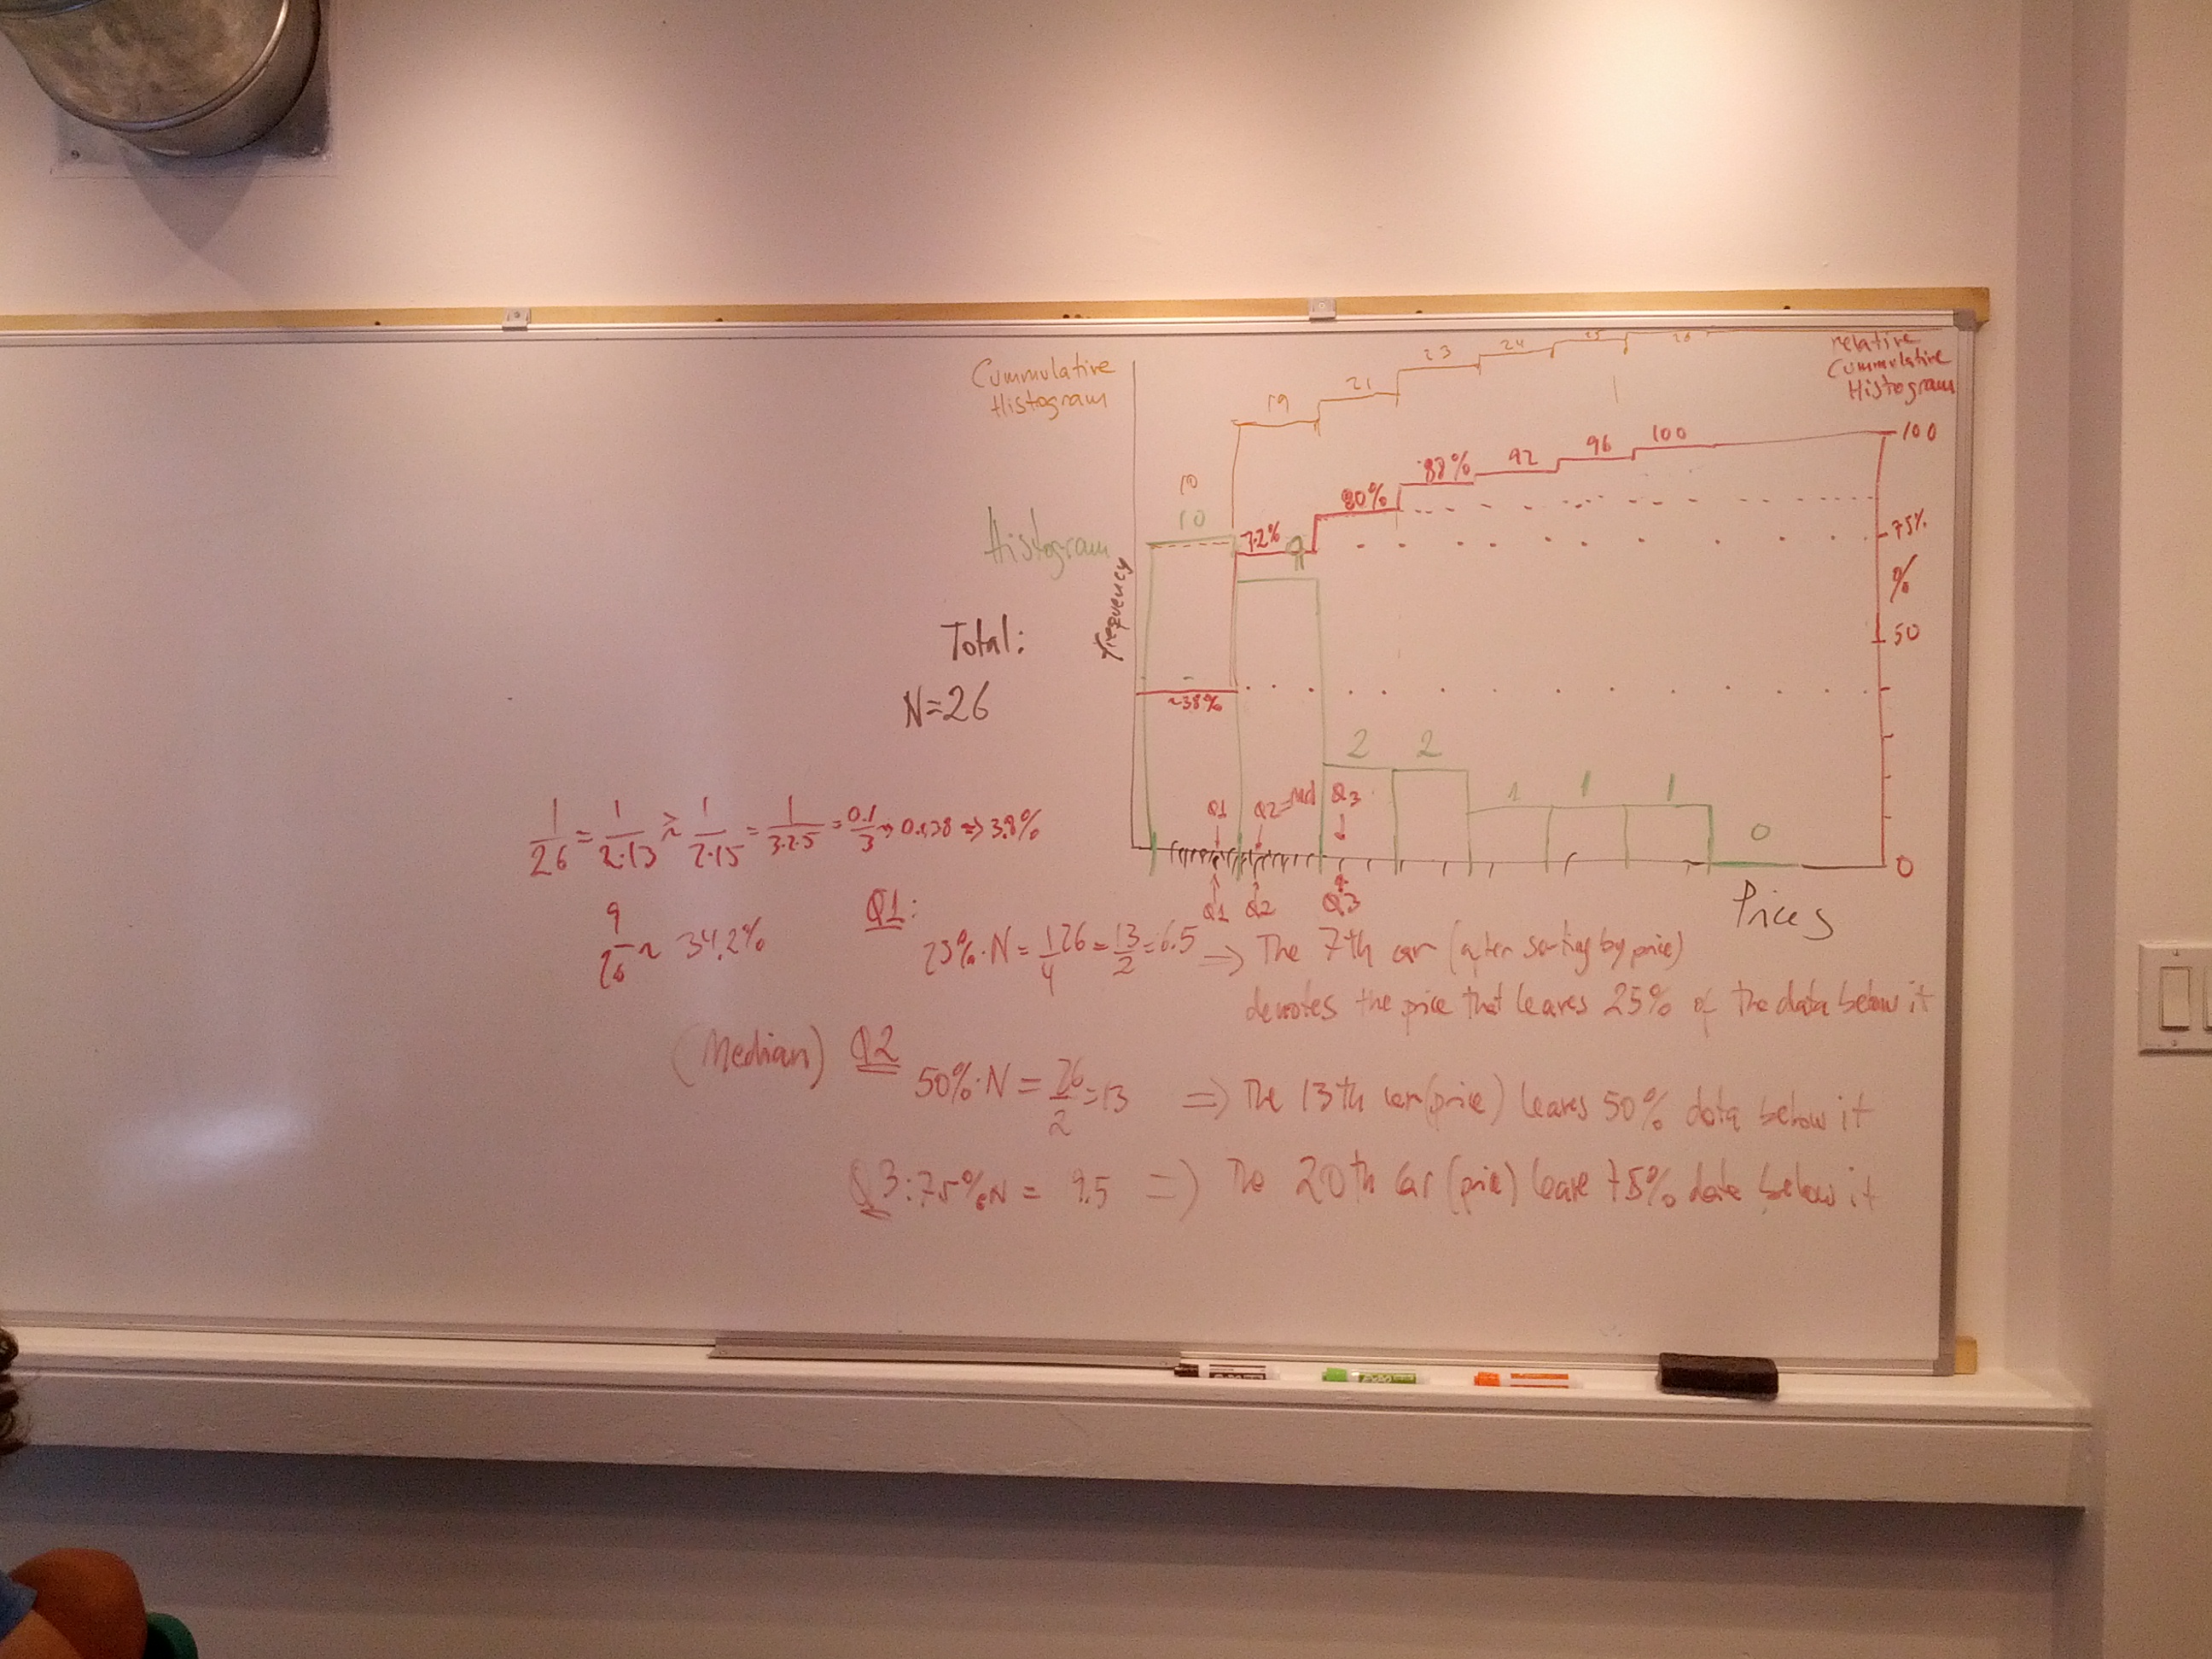 Cummulative
Histogram
relative
Cummulative
Histogram
10
19
21
23
24
25
26
Histogram
10
9
2
2
1
1
1
0
~38%
72%
80%
88%
92
96
100
100
75%
%
50
0
frequency
Total:
N=26
Q1
Q2=med
Q3
Q1
Q2
Q3
Prices
1/26 = 1/2·13 ≈ 1/2·15 = 1/3·2·5 = 0.1/3 → 0.038 => 3.8%
9/26 ~ 34.2%
Q1:
25%·N = 1/4 26 = 13/2 = 6.5 => The 7th car (after sorting by price)
denotes the price that leaves 25% of the data below it
(Median) Q2
50%·N = 26/2 = 13 => The 13th car (price) leaves 50% data below it
Q3: 75%N = 9.5 => The 20th car (price) leave 75% data below it